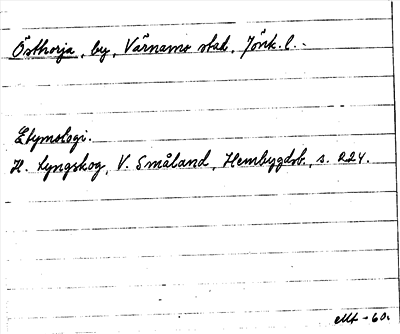 Östhorja, by, Värnamo stad, Jönk. l.
Etymologi.
H. Lyngskog, V. Småland, Hembygdsb., s. 224.
-60.